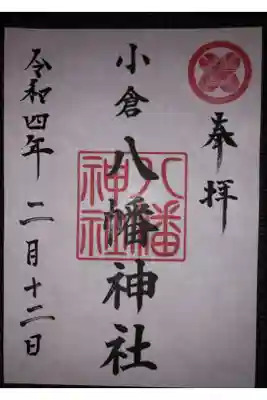 奉拝
小倉八幡神社
八幡神社
令和四年二月十二日